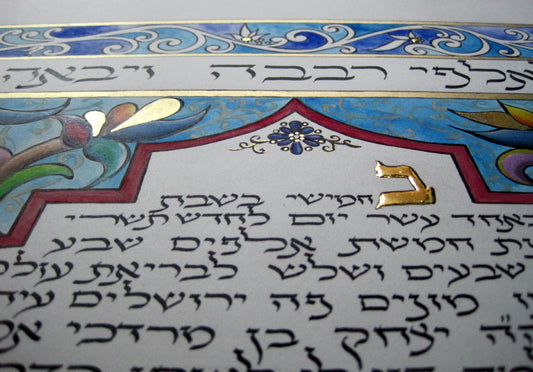 אלפי רבבה
בחמישי בשבת
באחד עשר יום לחדש תשרי
חמשת אלפים שבע
שבעים ושלש לבריאת
מונים פה ירושלים
יצחק בן מרדכי